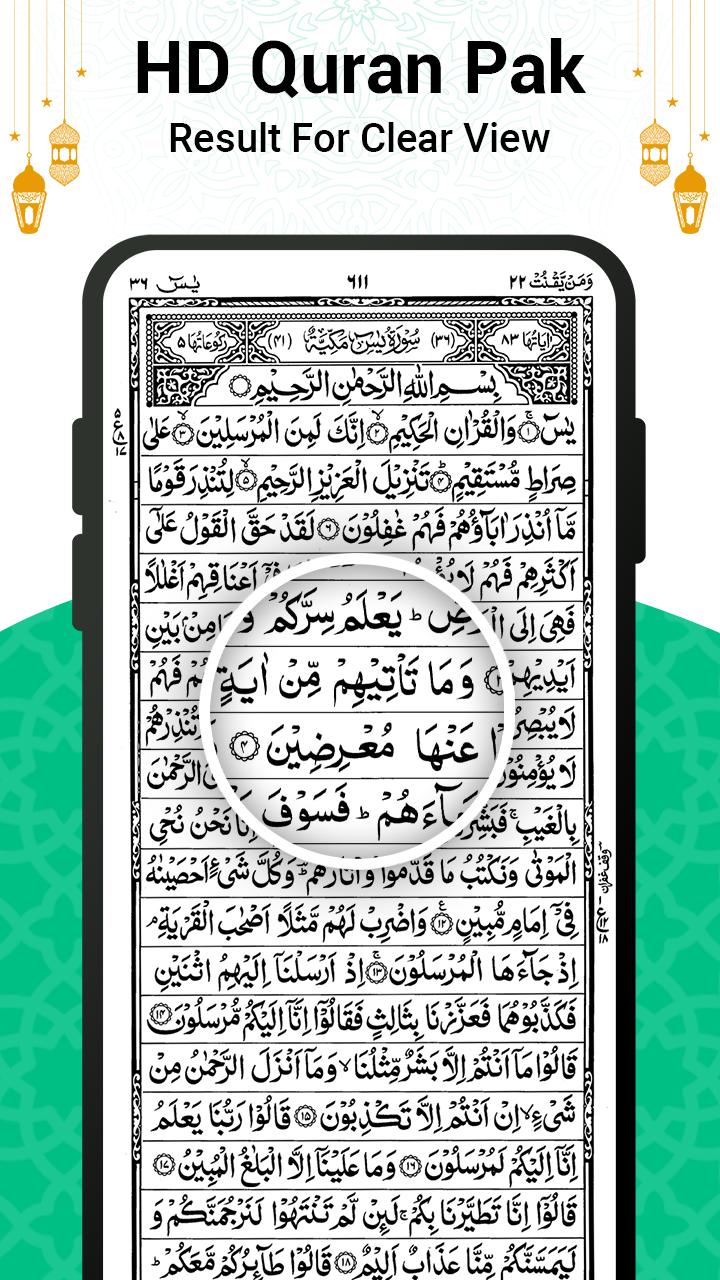 HD Quran Pak
Result For Clear View
وَمَنْ يَّقْنُتْ ٢٢ ٦١١ يٰسٓ ٣٦
اٰيَاتُهَا ٨٣ (٣٦) سُوْرَةُ يٰسٓ مَكِّيَّةٌ (٤١) رُكُوْعَاتُهَا ٥
بِسْمِ اللّٰهِ الرَّحْمٰنِ الرَّحِيْمِ
يٰسٓ ۚ﴿١﴾ وَالْقُرْاٰنِ الْحَكِيْمِ ۙ﴿٢﴾ اِنَّكَ لَمِنَ الْمُرْسَلِيْنَ ۙ﴿٣﴾ عَلٰى
صِرَاطٍ مُّسْتَقِيْمٍ ؕ﴿٤﴾ تَنْزِيْلَ الْعَزِيْزِ الرَّحِيْمِ ۙ﴿٥﴾ لِتُنْذِرَ قَوْمًا
مَّاۤ اُنْذِرَ اٰبَآؤُهُمْ فَهُمْ غٰفِلُوْنَ ﴿٦﴾ لَقَدْ حَقَّ الْقَوْلُ عَلٰۤى
اَكْثَرِهِمْ فَهُمْ اَعْنَاقِهِمْ اَغْلٰلًا
فَهِىَ اِلَى يَعْلَمُ سِرَّكُمْ وَ مِنْۢ بَيْنِ
اَيْدِيْهِمْ وَمَا تَاْتِيْهِمْ مِّنْ اٰيَةٍ فَهُمْ
عَنْهَا مُعْرِضِيْنَ ﴿٤﴾ تُنْذِرْهُمْ
لَا يُؤْمِنُوْنَ الرَّحْمٰنَ
بِالْغَيْبِ ۚ فَسَوْفَ نَحْنُ نُحْىِ
الْمَوْتٰى وَنَكْتُبُ مَا قَدَّمُوْا وَاٰثَارَهُمْ ؕ وَكُلَّ شَىْءٍ اَحْصَيْنٰهُ
فِىْۤ اِمَامٍ مُّبِيْنٍ ﴿١٢﴾ وَاضْرِبْ لَهُمْ مَّثَلًا اَصْحٰبَ الْقَرْيَةِ ۘ
اِذْ جَآءَهَا الْمُرْسَلُوْنَ ۚ﴿١٣﴾ اِذْ اَرْسَلْنَاۤ اِلَيْهِمُ اثْنَيْنِ
فَكَذَّبُوْهُمَا فَعَزَّزْنَا بِثَالِثٍ فَقَالُوْۤا اِنَّاۤ اِلَيْكُمْ مُّرْسَلُوْنَ ﴿١٤﴾
قَالُوْا مَاۤ اَنْتُمْ اِلَّا بَشَرٌ مِّثْلُنَا ۙ وَمَاۤ اَنْزَلَ الرَّحْمٰنُ مِنْ
شَىْءٍ ۙ اِنْ اَنْتُمْ اِلَّا تَكْذِبُوْنَ ﴿١٥﴾ قَالُوْا رَبُّنَا يَعْلَمُ
اِنَّاۤ اِلَيْكُمْ لَمُرْسَلُوْنَ ﴿١٦﴾ وَمَا عَلَيْنَاۤ اِلَّا الْبَلٰغُ الْمُبِيْنُ ﴿١٧﴾
قَالُوْۤا اِنَّا تَطَيَّرْنَا بِكُمْ ۚ لَئِنْ لَّمْ تَنْتَهُوْا لَنَرْجُمَنَّكُمْ وَ
لَيَمَسَّنَّكُمْ مِّنَّا عَذَابٌ اَلِيْمٌ ﴿١٨﴾ قَالُوْا طَآئِرُكُمْ مَّعَكُمْ ؕ
وقف غفران